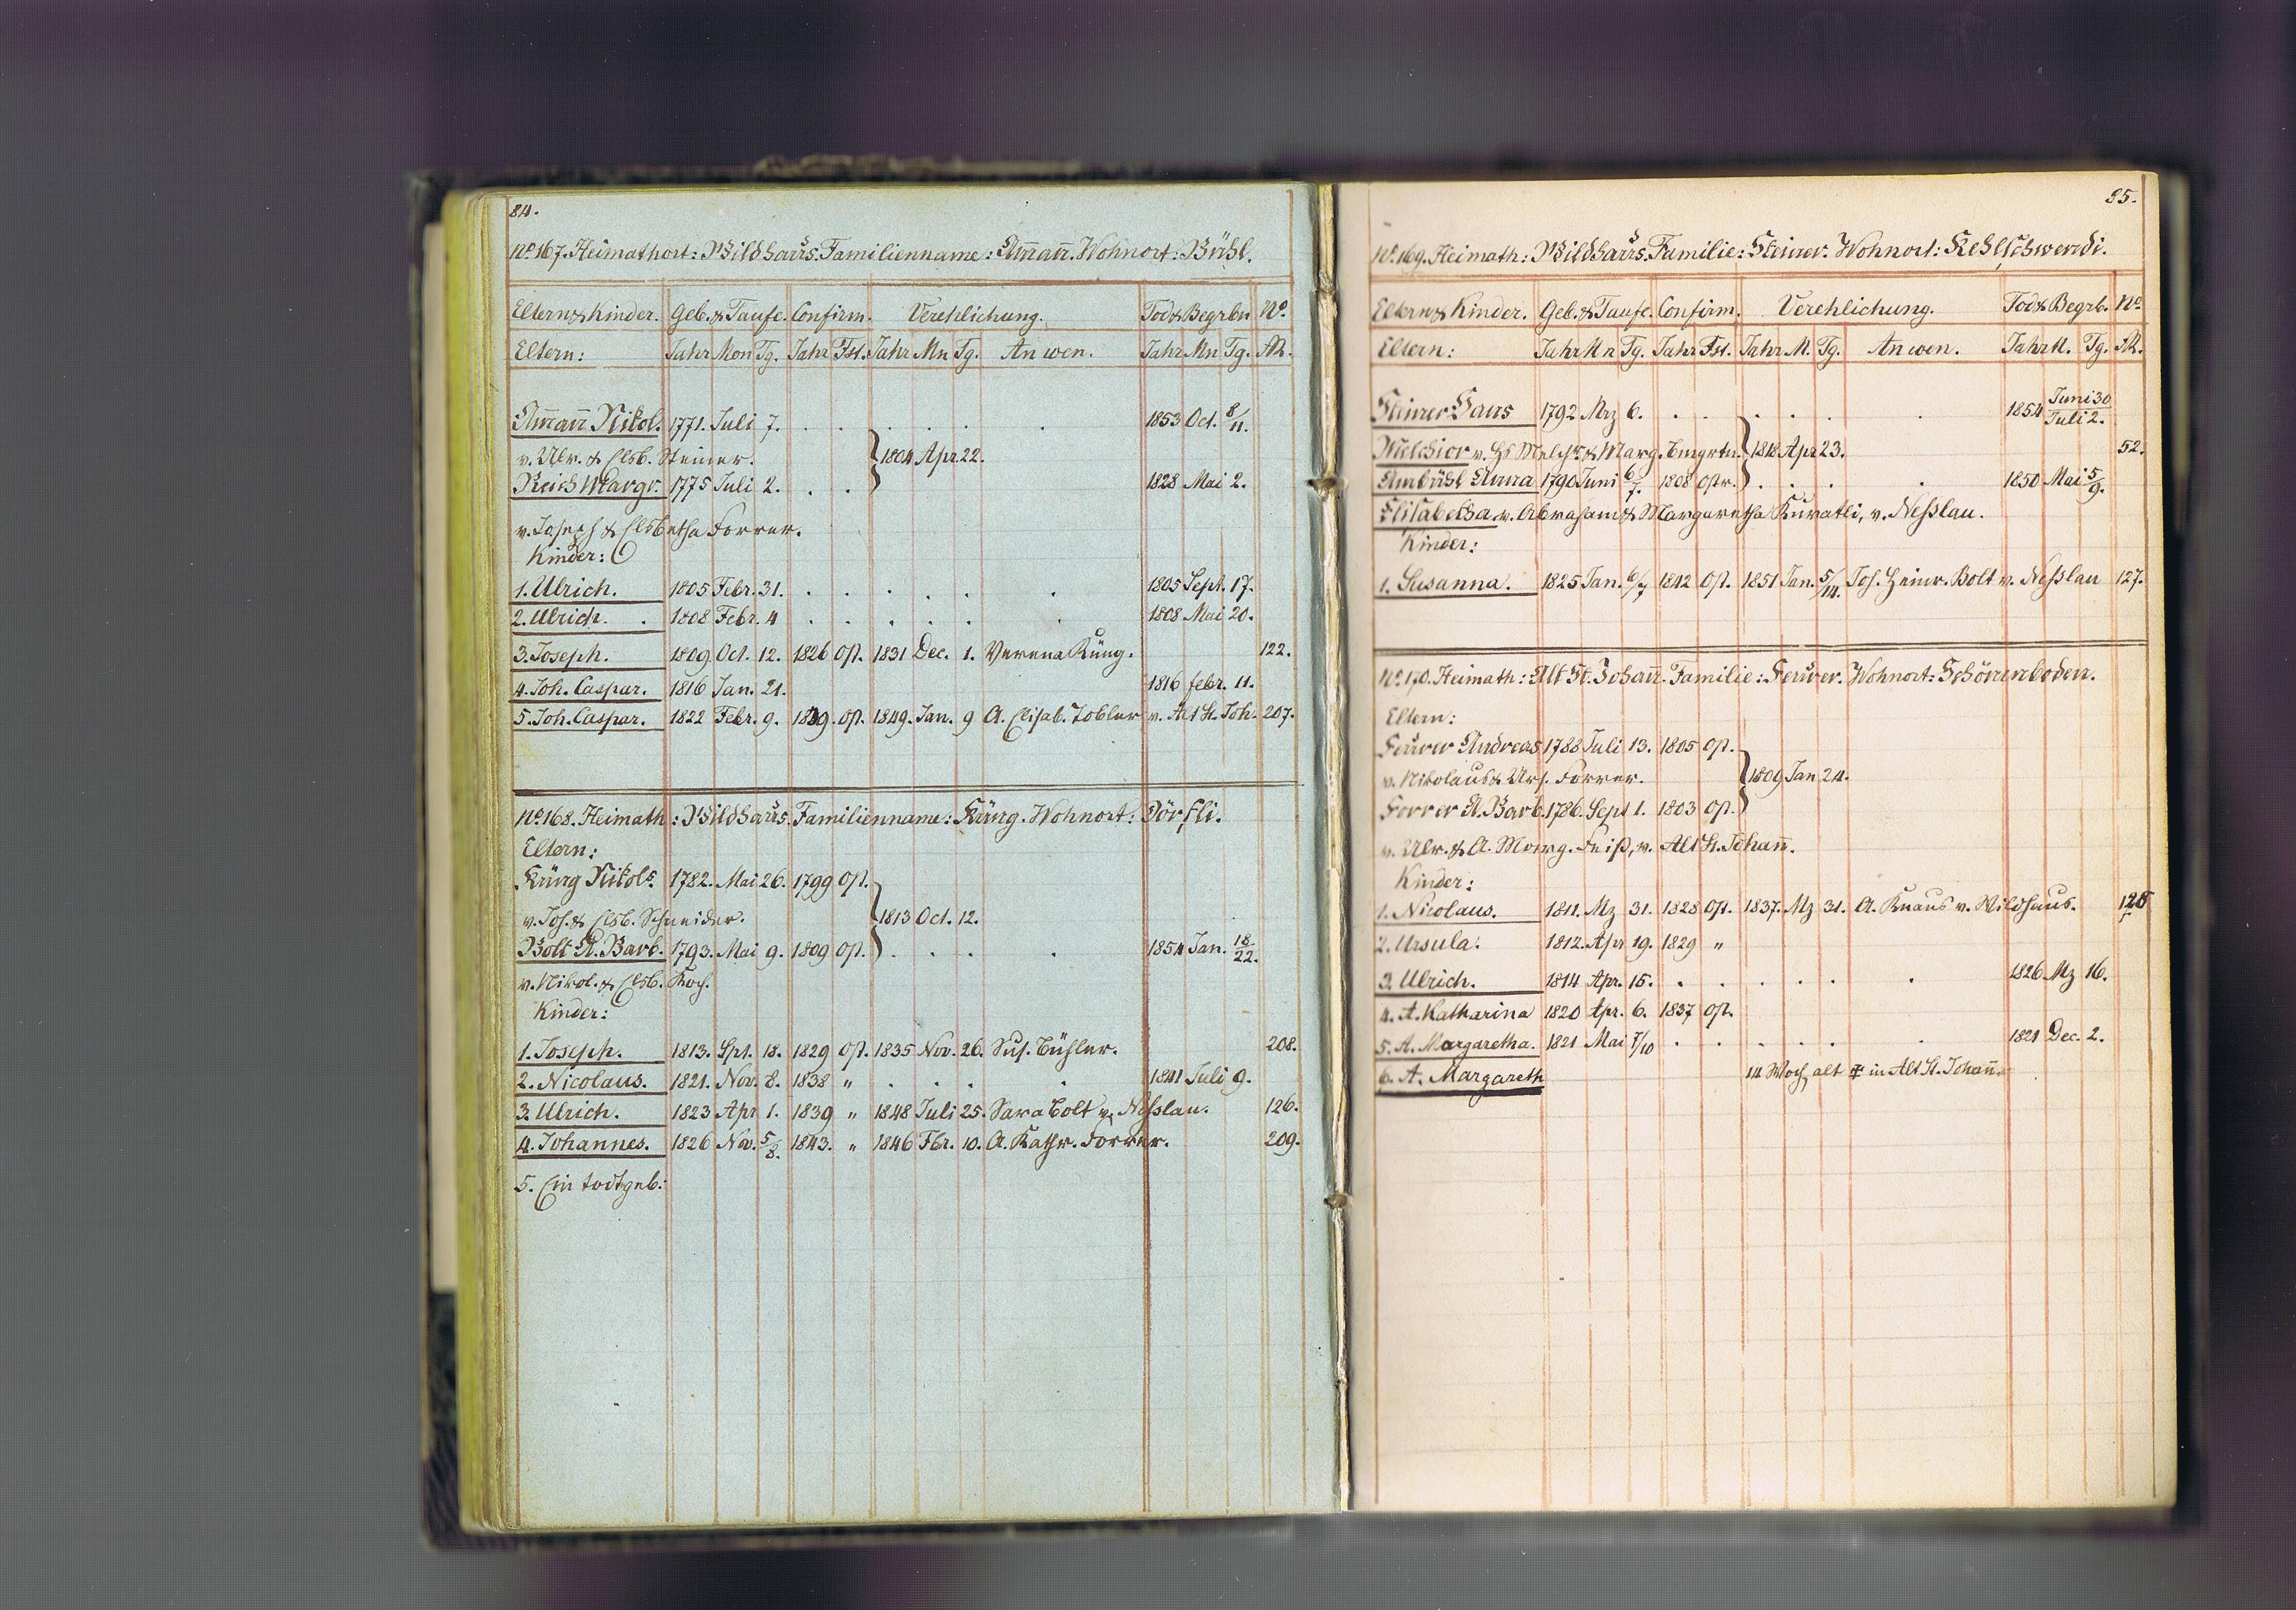 84.
No. 167. Heimathort: Wildhaus. Familienname: Am̄an̄. Wohnort: Bühl.
Eltern & Kinder. Geb. & Taufe. Confirm. Verehlichung. Tod & Begrbn No.
Eltern: Jahr Mon Tg. Jahr Fst. Jahr Mn Tg. An wen. Jahr Mn Tg.
Am̄an̄ Nikol. 1771. Juli 7. . . . . . . 1853 Oct. 8/11.
v. Ulr. & Elsb. Steiner. } 1804 Apr. 22.
Reich Margr. 1775 Juli 2. . . 1828 Mai 2.
v. Joseph & Elsbetha Forrer.
Kinder:
1. Ulrich. 1805 Febr. 31. . . . . . . 1805 Sept. 17.
2. Ulrich. . 1808 Febr. 4 . . . . . . 1808 Mai 20.
3. Joseph. 1809. Oct. 12. 1826 Op. 1831 Dec. 1. Verena Küng. 122.
4. Joh. Caspar. 1816 Jan. 21. 1816 febr. 11.
5. Joh. Caspar. 1822 Febr. 9. 1839. Op. 1849. Jan. 9 A. Elisab. Tobler v. Alt St. Joh. 207.
No. 168. Heimath: Wildhaus. Familienname: Küng. Wohnort: Dörfli.
Eltern:
Küng Nikols. 1782. Mai 26. 1799 Op.
v. Joh. & Elsb. Schneider. } 1813 Oct. 12.
Bolt A. Barb. 1793. Mai 9. 1809 Op. . . . . 1854 Jan. 18/22.
v. Nikol. & Elsb. Koch.
Kinder:
1. Joseph. 1813. Spt. 18. 1829 Op. 1835 Nov. 26. Sus. Bühler. 208.
2. Nicolaus. 1821. Nov. 8. 1838 " . . . . 1841 Juli 9.
3. Ulrich. 1823 Apr 1. 1839 " 1848 Juli 25. Sara Bolt v. Nesslau. 126.
4. Johannes. 1826 Nov. 5/8. 1843. " 1846 Fbr. 10. A. Kathr. Forrer. 209.
5. Ein todtgeb:
85.
No. 169. Heimath: Wildhaus. Familie: Steiner. Wohnort: Kehlschwendi.
Eltern & Kinder. Geb. & Taufe. Confirm. Verehlichung. Tod & Begrb. No
Eltern: Jahr Mn Tg. Jahr Fst. Jahr M. Tg. An wen. Jahr M. Tg.
Steiner Hans 1792 Mrz 6. . . . . . . 1854 Juni 30 / Juli 2.
Melchior v. Hs Melchr. & Marg. } 1818 Apr 23. 52.
Ambühl Anna 1790 Juni 6/7. 1808 Ostr. . . . . 1850 Mai 5/9.
Elisabetha v. Abraham & Margaretha Kuratli, v. Nesslau.
Kinder:
1. Susanna. 1825 Jan. 6/7 1842 Op. 1851 Jan. 5/14. Jos. Heinr. Bolt v. Nesslau 127.
No. 170. Heimath: Alt St. Johan̄. Familie: Feurer. Wohnort: Schönenboden.
Eltern:
Feurer Andreas 1788 Juli 13. 1805 Op.
v. Nikolaus & Urs. Forrer. } 1809 Jan 24.
Forrer A. Barb. 1786. Sept 1. 1803 Op.
v. Ulr. & A. Marg. Feiss, v. Alt St. Johan̄.
Kinder:
1. Nicolaus. 1811. Mz 31. 1828 Op. 1837. Mz 31. A. Knaus v. Wildhaus. 128
2. Ursula. 1812. Apr 19. 1829 "
3. Ulrich. 1814 Apr. 15. . . . . . . 1826 Mz 16.
4. A. Katharina 1820 Apr. 6. 1837 Op.
5. A. Margaretha. 1821 Mai 7/10 . . . . . . 1821 Dec. 2.
6. A. Margareth 14 Woch. alt † in Alt St. Johan̄.